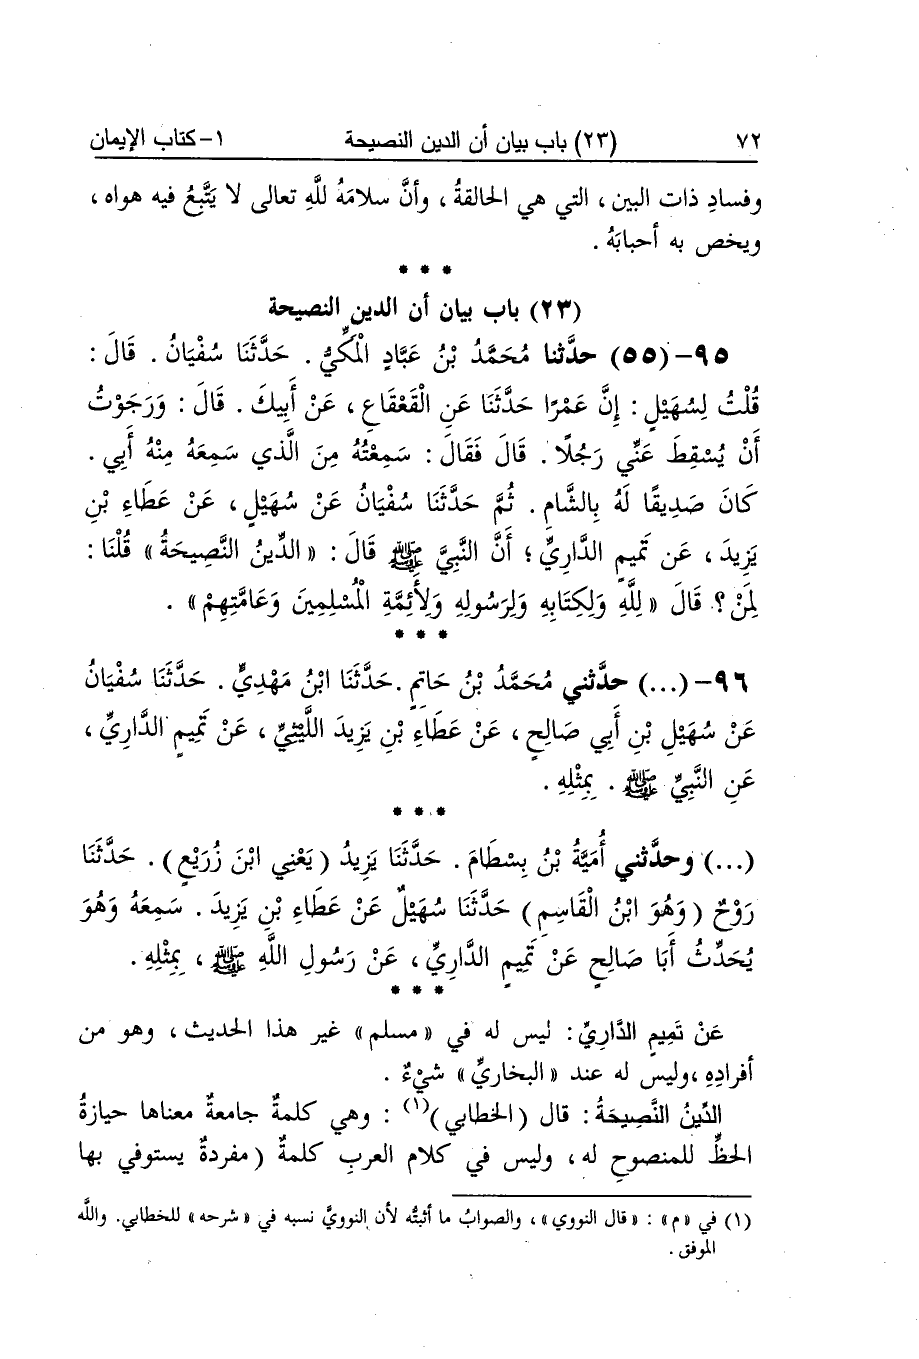 ٧٢ (٢٣) باب بيان أن الدين النصيحة ١- كتاب الإيمان
وفسادِ ذات البين ، التي هي الحالقةُ ، وأنَّ سلامَهُ للَّهِ تعالى لا يَتَّبِعُ فيه هواه ،
ويخص به أحبابَهُ .
* * *
(٢٣) باب بيان أن الدين النصيحة
٩٥- (٥٥) حدَّثنا مُحَمَّدُ بْنُ عَبَّادٍ الْمَكِّيُّ . حَدَّثَنَا سُفْيَانُ . قَالَ :
قُلْتُ لِسُهَيْلٍ : إِنَّ عَمْرًا حَدَّثَنَا عَنِ الْقَعْقَاعِ ، عَنْ أَبِيكَ . قَالَ : وَرَجَوْتُ
أَنْ يُسْقِطَ عَنِّي رَجُلًا . قَالَ فَقَالَ : سَمِعْتُهُ مِنَ الَّذي سَمِعَهُ مِنْهُ أَبِي .
كَانَ صَدِيقًا لَهُ بِالشَّامِ . ثُمَّ حَدَّثَنَا سُفْيَانُ عَنْ سُهَيْلٍ ، عَنْ عَطَاءِ بْنِ
يَزِيدَ ، عَن تَمِيمٍ الدَّارِيِّ ؛ أَنَّ النَّبِيَّ ﷺ قَالَ : « الدِّينُ النَّصِيحَةُ » قُلْنَا :
لِمَنْ ؟ قَالَ « لِلَّهِ وَلِكِتَابِهِ وَلِرَسُولِهِ وَلِأَئِمَّةِ الْمُسْلِمِينَ وَعَامَّتِهِمْ » .
* * *
٩٦- (...) حدَّثني مُحَمَّدُ بْنُ حَاتِمٍ .حَدَّثَنَا ابْنُ مَهْدِيٍّ . حَدَّثَنَا سُفْيَانُ
عَنْ سُهَيْلِ بْنِ أَبِي صَالِحٍ ، عَنْ عَطَاءِ بْنِ يَزِيدَ اللَّيْثِيِّ ، عَنْ تَمِيمٍ الدَّارِيِّ ،
عَنِ النَّبِيِّ ﷺ . بِمِثْلِهِ .
* * *
(...) وحدَّثني أُمَيَّةُ بْنُ بِسْطَامَ . حَدَّثَنَا يَزِيدُ ( يَعْنِي ابْنَ زُرَيْعٍ ) . حَدَّثَنَا
رَوْحٌ ( وَهُوَ ابْنُ الْقَاسِمِ ) حَدَّثَنَا سُهَيْلٌ عَنْ عَطَاءِ بْنِ يَزِيدَ . سَمِعَهُ وَهُوَ
يُحَدِّثُ أَبَا صَالِحٍ عَنْ تَمِيمٍ الدَّارِيِّ ، عَنْ رَسُولِ اللَّهِ ﷺ ، بِمِثْلِهِ .
* * *
عَنْ تَمِيمٍ الدَّارِيِّ : ليس له في « مسلم » غير هذا الحديث ، وهو من
أفرادِهِ ،وليس له عند « البخاريِّ » شيْءٌ .
الدِّينُ النَّصِيحَةُ : قال ( الخطابي )(١) : وهي كلمةٌ جامعةٌ معناها حيازةُ
الحظِّ للمنصوحِ له ، وليس في كلام العربِ كلمةٌ ( مفردةٌ يستوفي بها
(١) في « م » : « قال النووي » ، والصوابُ ما أثبتُّه لأن النوويَّ نسبه في « شرحه » للخطابي. واللَّه
الموفق .